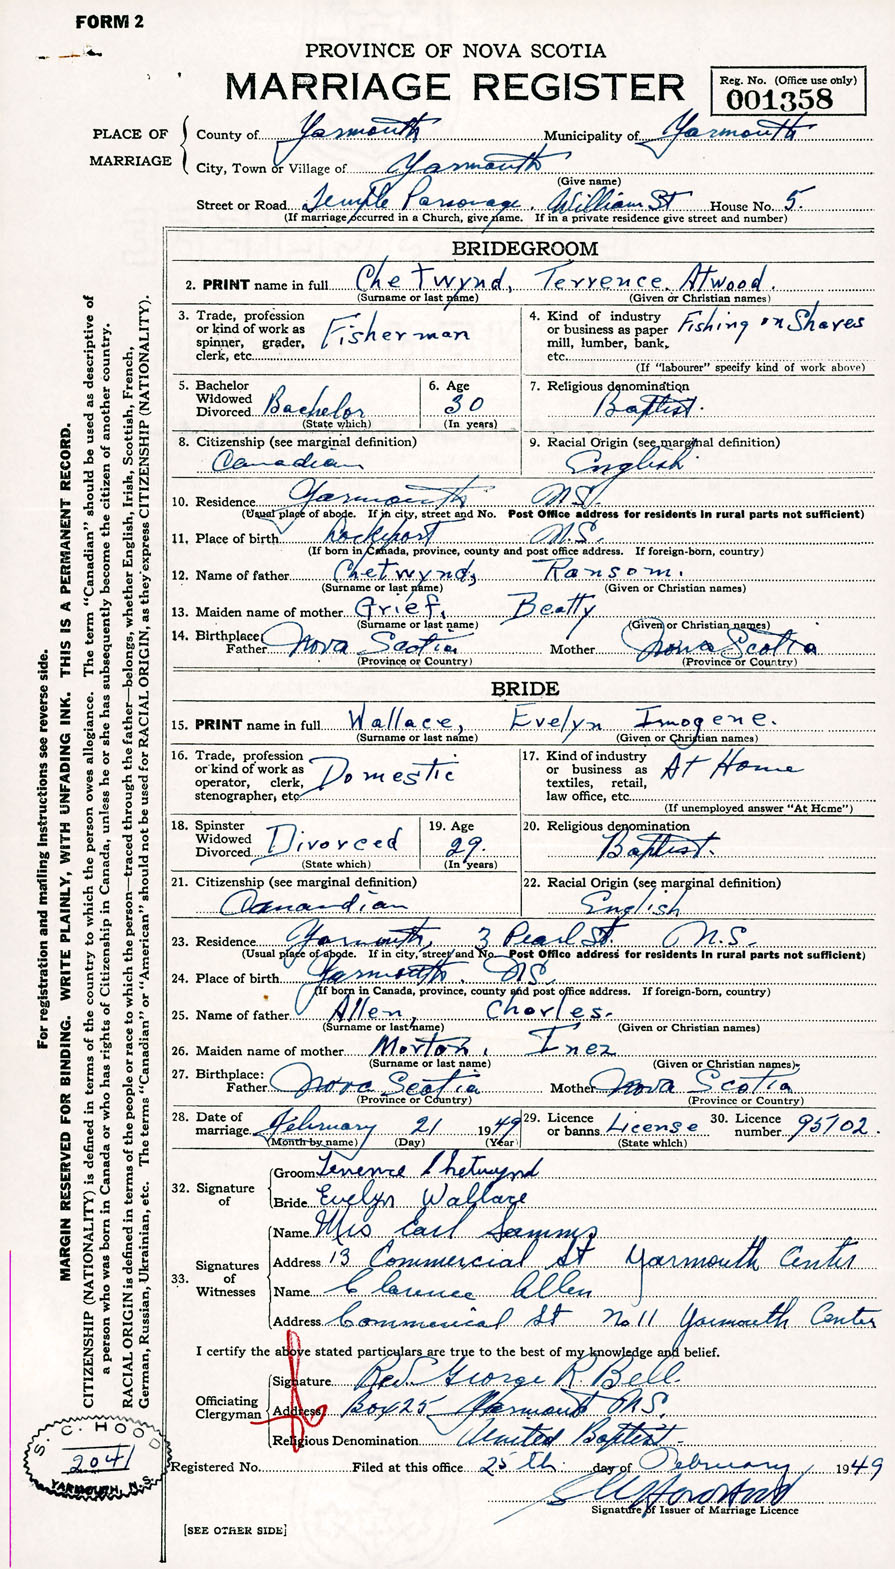 FORM 2
PROVINCE OF NOVA SCOTIA
MARRIAGE REGISTER
Reg. No. (Office use only)
001358
PLACE OF MARRIAGE
County of Yarmouth Municipality of Yarmouth
City, Town or Village of Yarmouth
(Give name)
Street or Road Temple Parsonage, William St House No. 5.
(If marriage occurred in a Church, give name. If in a private residence give street and number)
BRIDEGROOM
2. PRINT name in full Chetwynd, Terrence Atwood.
(Surname or last name) (Given or Christian names)
3. Trade, profession or kind of work as spinner, grader, clerk, etc. Fisherman
4. Kind of industry or business as paper mill, lumber, bank, etc. Fishing on Shares
(If "labourer" specify kind of work above)
5. Bachelor Widowed Divorced Bachelor
(State which)
6. Age 30
(In years)
7. Religious denomination
Baptist.
8. Citizenship (see marginal definition)
Canadian
9. Racial Origin (see marginal definition)
English
10. Residence Yarmouth N.S.
(Usual place of abode. If in city, street and No. Post Office address for residents in rural parts not sufficient)
11. Place of birth Lockeport N.S.
(If born in Canada, province, county and post office address. If foreign-born, country)
12. Name of father Chetwynd, Ransom.
(Surname or last name) (Given or Christian names)
13. Maiden name of mother Grief, Beatty
(Surname or last name) (Given or Christian names)
14. Birthplace: Father Nova Scotia Mother Nova Scotia
(Province or Country) (Province or Country)
BRIDE
15. PRINT name in full Wallace, Evelyn Imogene.
(Surname or last name) (Given or Christian names)
16. Trade, profession or kind of work as operator, clerk, stenographer, etc. Domestic
17. Kind of industry or business as textiles, retail, law office, etc. At Home
(If unemployed answer "At Home")
18. Spinster Widowed Divorced Divorced
(State which)
19. Age 29.
(In years)
20. Religious denomination
Baptist.
21. Citizenship (see marginal definition)
Canandian
22. Racial Origin (see marginal definition)
English
23. Residence Yarmouth, 3 Pearl St. N.S.
(Usual place of abode. If in city, street and No. Post Office address for residents in rural parts not sufficient)
24. Place of birth Yarmouth. N.S.
(If born in Canada, province, county and post office address. If foreign-born, country)
25. Name of father Allen, Charles.
(Surname or last name) (Given or Christian names)
26. Maiden name of mother Morton, Inez
(Surname or last name) (Given or Christian names)
27. Birthplace: Father Nova Scotia Mother Nova Scotia
(Province or Country) (Province or Country)
28. Date of marriage February 21 1949
(Month by name) (Day) (Year)
29. Licence or banns License
(State which)
30. Licence number 95702.
32. Signature of
Groom Terrence Chetwynd
Bride Evelyn Wallace
33. Signatures of Witnesses
Name Mrs Earl Samms
Address 13 Commercial St Yarmouth Center
Name Clarence Allen
Address Commercial St No 11 Yarmouth Center
I certify the above stated particulars are true to the best of my knowledge and belief.
Officiating Clergyman
Signature Rev. George R. Bell.
Address Box 25 Yarmouth N.S.
Religious Denomination United Baptist.
Registered No. Filed at this office 25th day of February 1949
Signature of Issuer of Marriage Licence
[SEE OTHER SIDE]
For registration and mailing instructions see reverse side.
MARGIN RESERVED FOR BINDING. WRITE PLAINLY, WITH UNFADING INK. THIS IS A PERMANENT RECORD.
CITIZENSHIP (NATIONALITY) is defined in terms of the country to which the person owes allegiance. The term "Canadian" should be used as descriptive of
a person who was born in Canada or who has rights of Citizenship in Canada, unless he or she has subsequently become the citizen of another country.
RACIAL ORIGIN is defined in terms of the people or race to which the person—traced through the father—belongs, whether English, Irish, Scottish, French,
German, Russian, Ukrainian, etc. The terms "Canadian" or "American" should not be used for RACIAL ORIGIN, as they express CITIZENSHIP (NATIONALITY).
S. C. HOOD
2041
YARMOUTH, N.S.